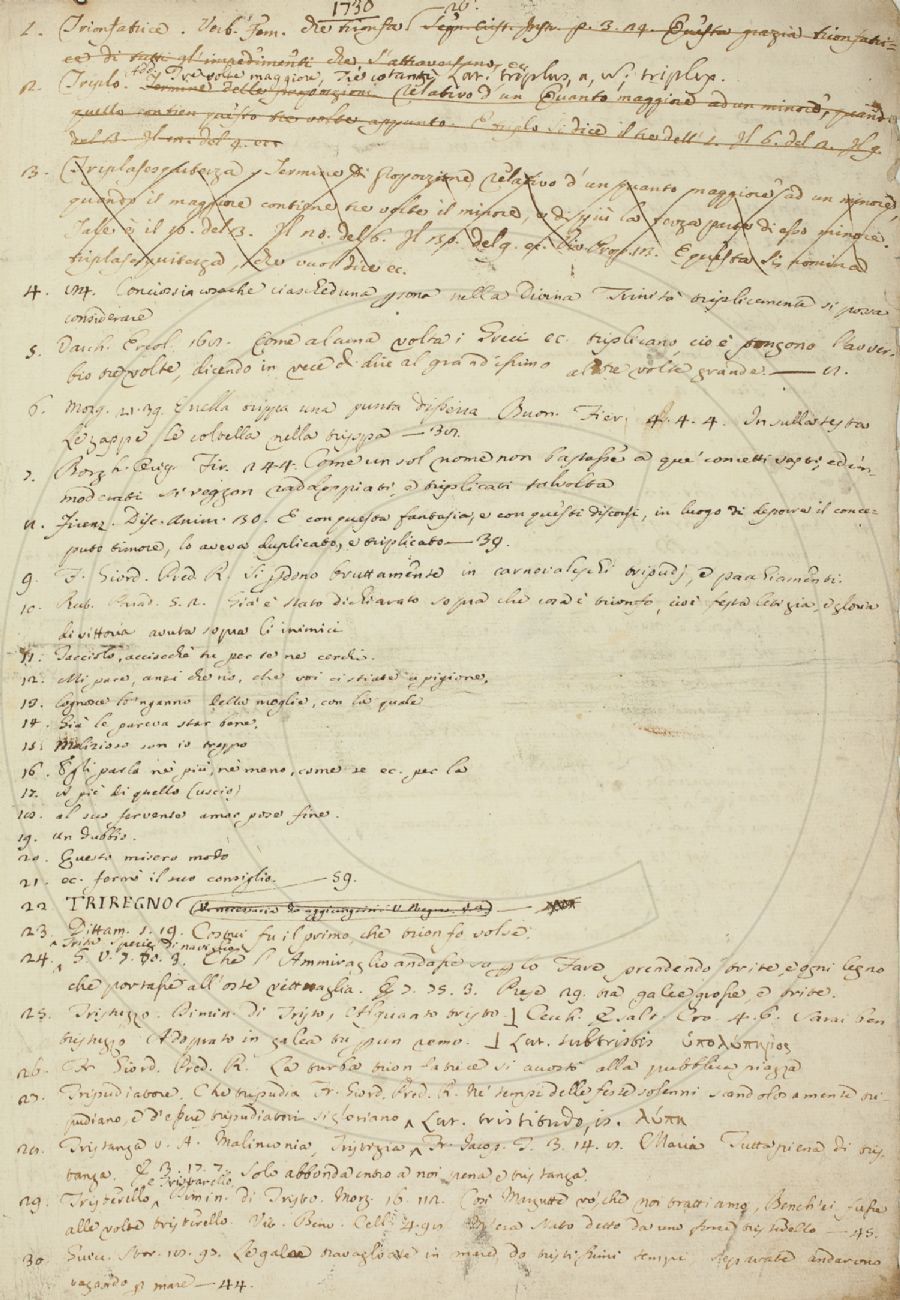 1730
1. Trionfatrice. Verb. Fem. Che trionfa Segn. Crist. Instr. p. 3. 29. Questa grazia trionfatri=
ce di tutti gl'impedimenti che s'attraversano, ec.
Add. Tre volte maggiore, Tre cotanti, Lat. triplus, a, um, triplex.
2. Triplo. Termine delle proporzioni relativo d'un Quanto maggiore ad un minore, quand
quello contien questo tre volte appunto. E triplo si dice il tre dell' 1. Il 6. del 2. Il 9.
del 3. Il 12. del 4. ec.
3. Triplasesquiterza. Termine di proporzione, relativo d'un quanto maggiore ad un minore,
quando il maggiore contiene tre volte il minore, e di più la terza parte di esso minore.
Tale è il 10. del 3. Il 20. del 6. Il 30. del 9. ec. E questa si nomina
triplasesquiterza, che vuol dire ec.
4. Conciossia cosache ciascheduna psona nella Divina Trinità triplicemente si possa
considerare
5. Varch. Ercol. Come alcuna volta i Greci ec. triplicano, cioè pongono l'avver-
bio tre volte, dicendo in vece di dire al grandissimo al tre volte grande
6. Morg. 21. 39. E nella trippa una punta Buon. Fier. 4. 4. 4. In sulla testa
Le zappe, le coltella nella trippa
7. Borgh. Orig. Fir. 244. Come un sol nome non bastasse a que' concetti vasti, ed im-
moderati si veggon raddoppiati, e triplicati talvolta
8. Firenz. Disc. anim. 30. E con questa fantasia, e con questi discorsi, in luogo di deporre il conce-
puto timore, lo aveva duplicato, e triplicato — 39.
9. F. Giord. Pred. R. Si pdono bruttamente in carnovaleschi tripudj, e pacchiamenti.
10. But. Parad. 5. 2. Già è stato dichiarato sopra che cosa è trionfo, cioè festa letizia, e gloria
di vittoria avuta sopra li inimici
11. Facciolo, acciocchè tu per te ne cerchi.
12. Mi pare, anzi che no, che voi ci stiate a pigione,
13. Cognosce lo 'nganno della moglie, con la quale
14. Già le pareva star bene,
15. Malizioso son io troppo
16. Egli parla nè più, nè meno, come se ec. per la
17. piè di quello (uscio)
18. al suo fervente amor pose fine.
19. un dubbio.
20. Questo misero modo
21. ec. fermò il suo consiglio. — 59.
22 TRIREGNO
23. Dittam. 1. 19. Costui fu il primo, che trionfò volse.
Trita specie di naviglio
24. G. V. 7. 60. 3. Che l'Ammiraglio andasse su p lo Fare prendendo trite, e ogni legno
che portasse all'oste vettuaglia. E 7. 75. 3. Prese 29. tra galee grosse, e trite.
25. Tristuzzo. Dimin. di Tristo, Alquanto tristo. Cecch. Esalt. Cro. 4. 6. Sarai ben
tristuzzo Adoprato in galea tu p un remo. Lat. subtristis ὑπολύπηρος
26. Fr. Giord. Pred. R. La turba trionfatrice si accostò alla pubblica piazza
27. Tripudiatore, Che tripudia Fr. Giord. Pred. R. Ne' tempi delle feste solenni scandolosamente tri-
pudiano, e d'esser tripudiatori si gloriano Lat. tristitudo, is. λύπη
28. Tristanza V. A. Malinconia, Tristezia Fr. Iacop. T. 3. 14. 8. Maria Tutta piena di tris-
tanza. E 3. 17. 7. Solo abbonda intro a noi pena e tristanza.
e Tristarello
29. Tristerello, Dimin. di Tristo. Morg. 18. 112. Con Margutte vo', che noi trattiamo, Bench'ei fusse
alle volte tristerello. Vit. Benv. Cell. M'era stato detto da uno forse tristerello — 45.
30. Guicc. Stor. 18. 93. Le galee travagliate in mare, da tristissimi tempi, separate andarono
vagando p mare — 44.